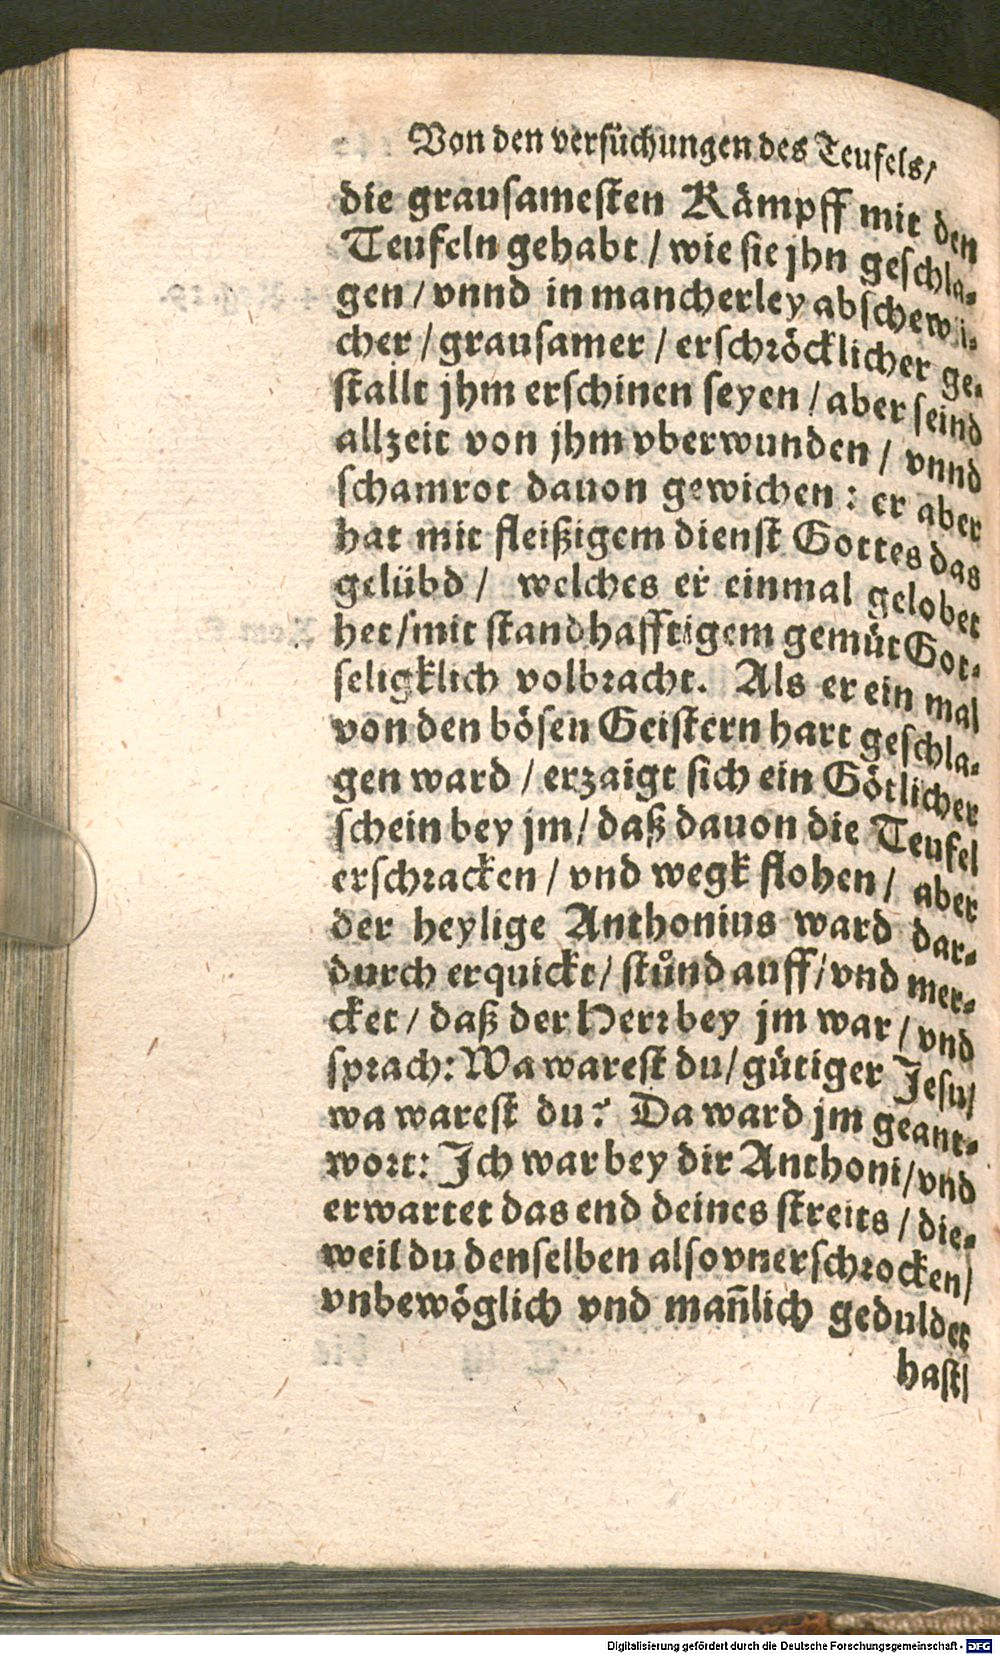 Von den versůchungen des Teufels/
die grausamesten Kämpff mit den
Teufeln gehabt / wie sie jhn geschla-
gen / vnnd in mancherley abschewli-
cher / grausamer / erschröcklicher ge-
stallt jhm erschinen seyen / aber seind
allzeit von jhm vberwunden / vnnd
schamrot dauon gewichen : er aber
hat mit fleißigem dienst Gottes das
gelübd / welches er einmal gelobet
het / mit standhafftigem gemüt Got-
seligklich volbracht. Als er ein mal
von den bösen Geistern hart geschla-
gen ward / erzaigt sich ein Götlicher
schein bey jm / daß dauon die Teufel
erschracken / vnd wegk flohen / aber
der heylige Anthonius ward dar-
durch erquickt / stůnd auff / vnd mer-
cket / daß der Herr bey jm war / vnd
sprach: Wa warest du / gütiger Jesu/
wa warest du? Da ward jm geant-
wort: Ich war bey dir Anthoni / vnd
erwartet das end deines streits / die-
weil du denselben also vnerschrocken/
vnbewöglich vnd man̄lich geduldet
hast/
Digitalisierung gefördert durch die Deutsche Forschungsgemeinschaft - DFG